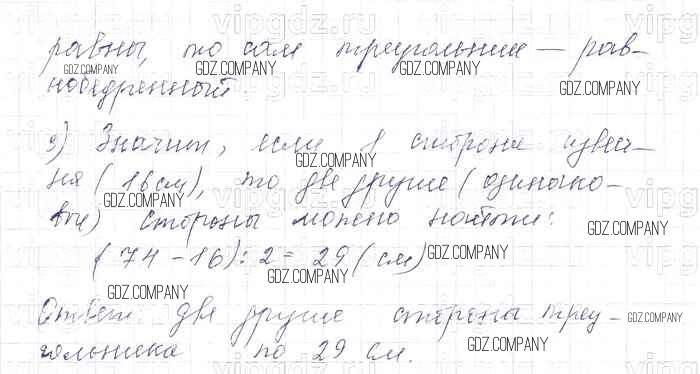 равны, то сам треугольник — рав-
нобедренный.
3) Значит, если 1 сторона извест-
на (16 см), то две другие (одинако-
вые) стороны можно найти:
(74 - 16) : 2 = 29 (см)
Ответ две другие стороны треу-
гольника по 29 см.
GDZ.COMPANY
GDZ.COMPANY
GDZ.COMPANY
GDZ.COMPANY
GDZ.COMPANY
GDZ.COMPANY
GDZ.COMPANY
GDZ.COMPANY
GDZ.COMPANY
GDZ.COMPANY
GDZ.COMPANY
GDZ.COMPANY
vipgdz.ru